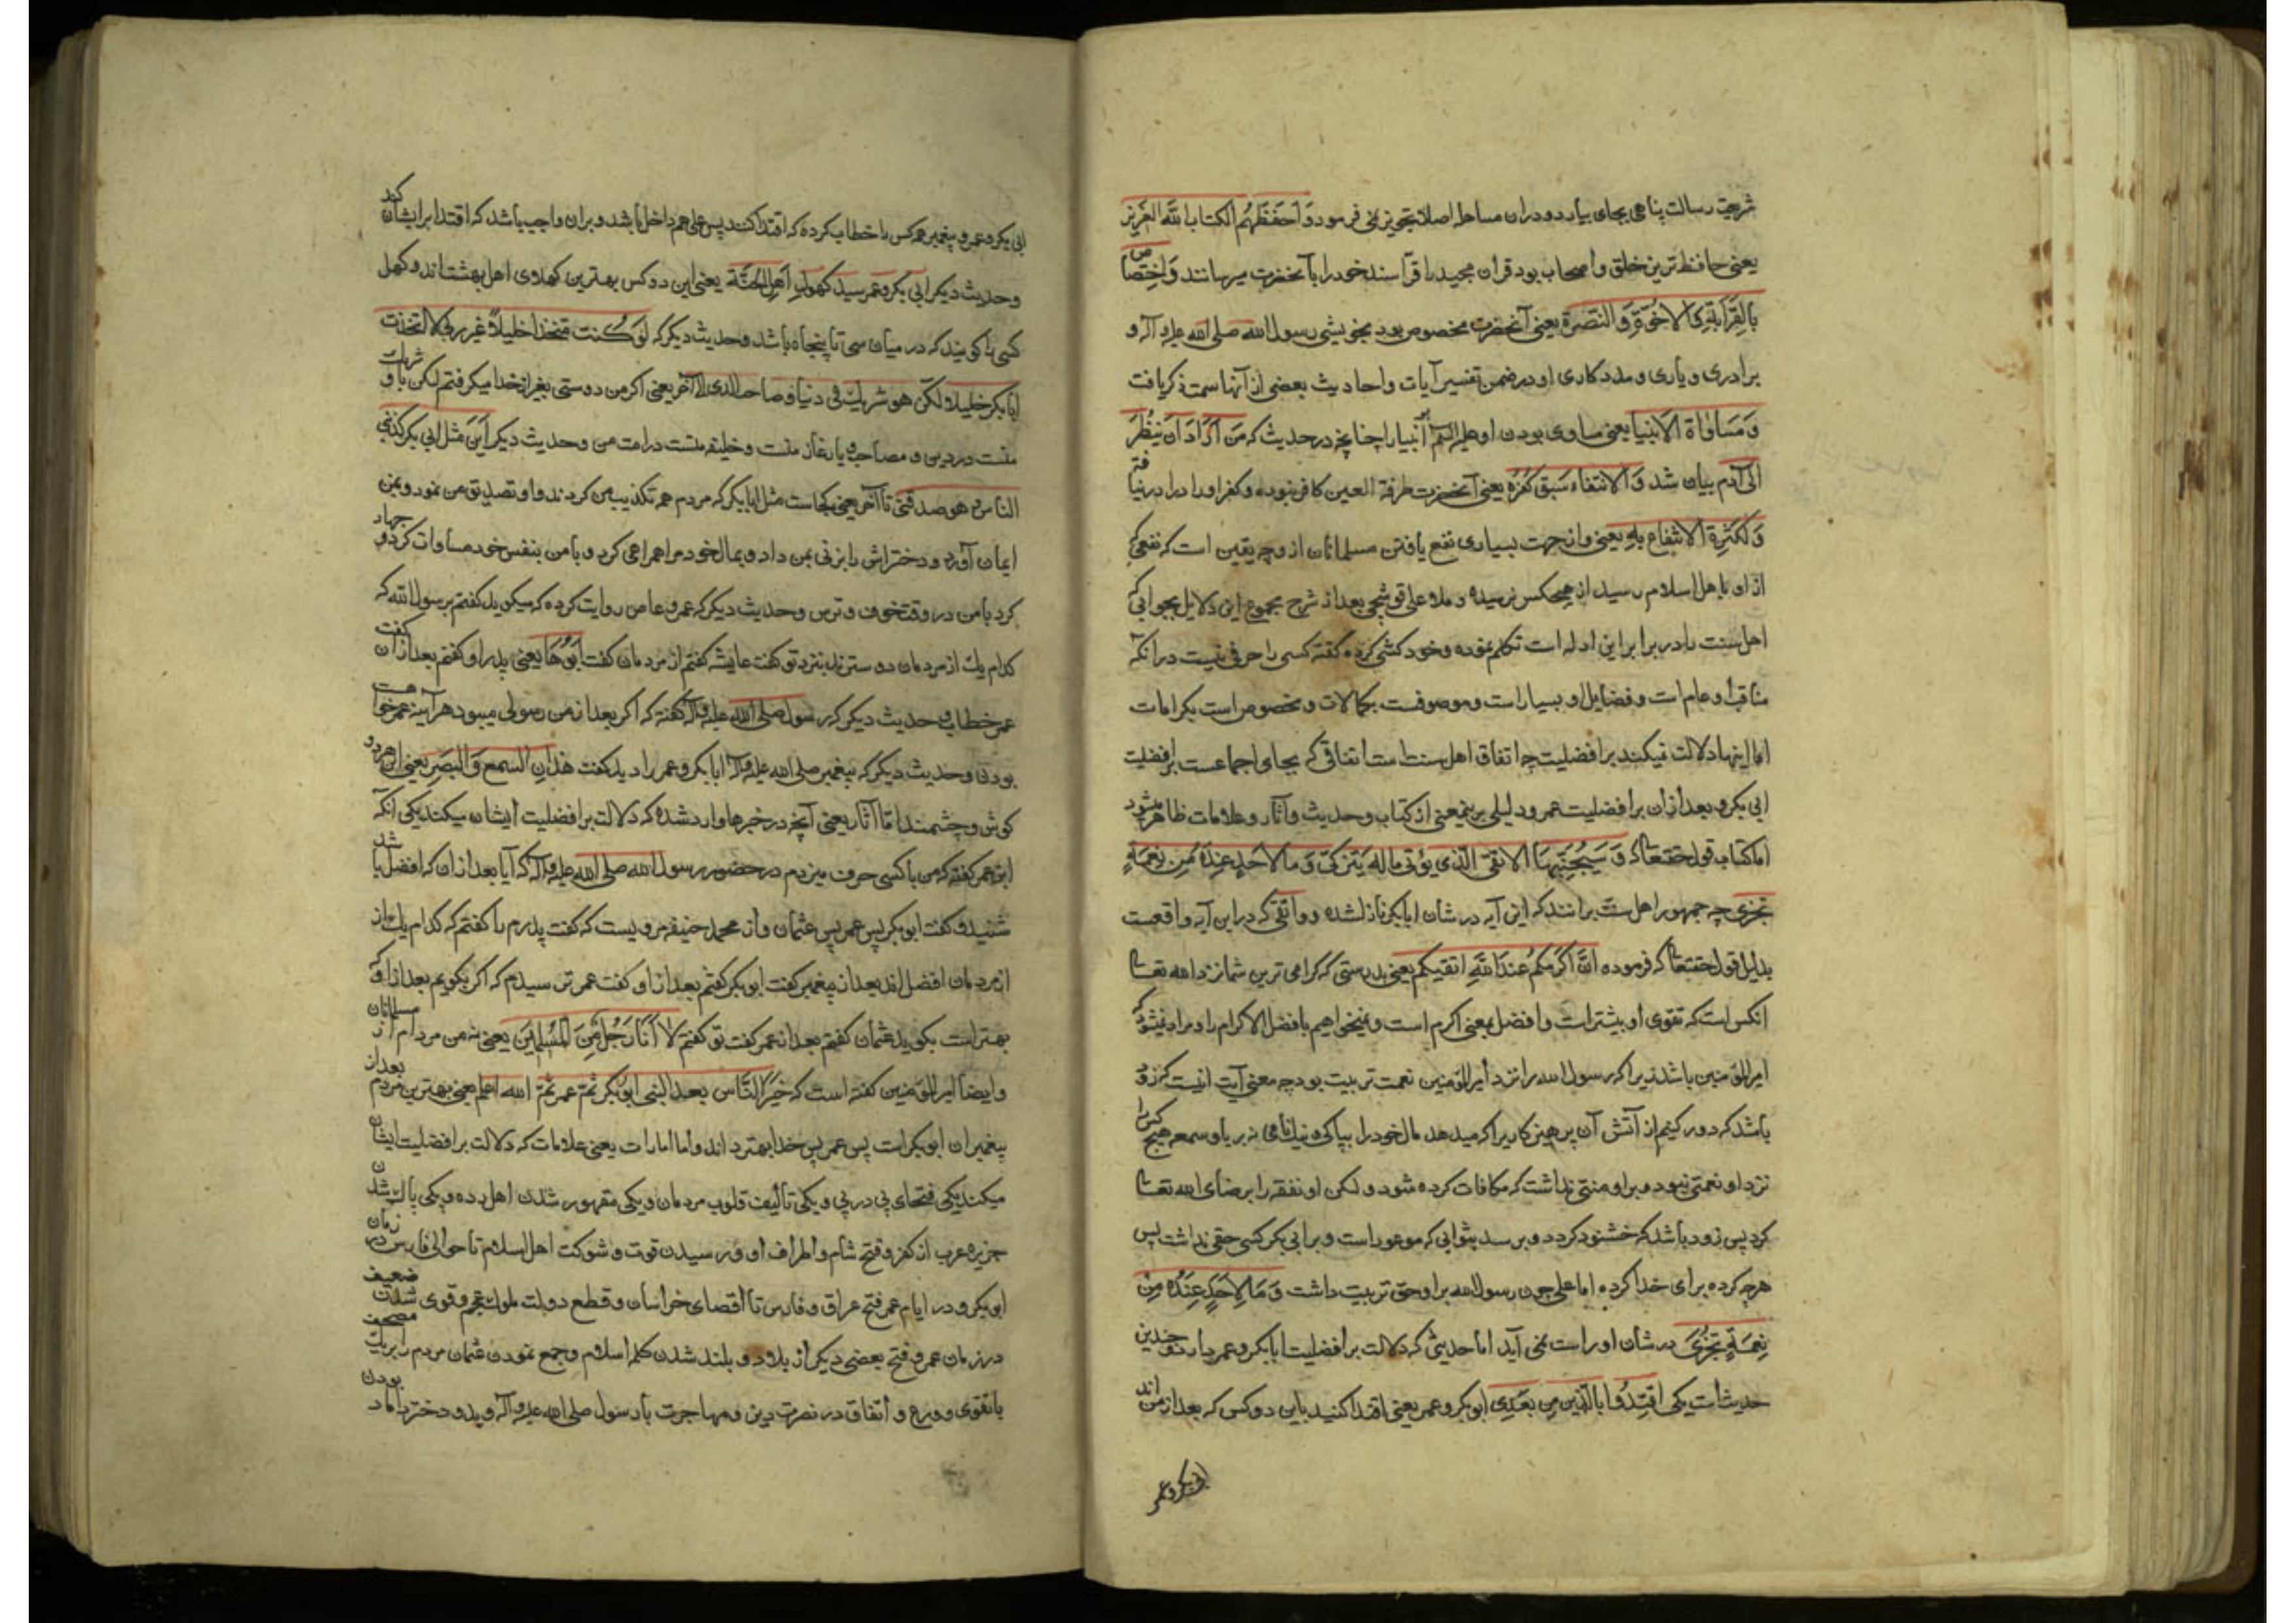 شرعیت رسالت پناهی بجای بیارد و دران مساهله اصلا تجویز نمی فرمود وَ اَحفَظَهُم الکتاب الله العزیز
یعنی حافظ ترین خلق و اصحاب بود قران مجید را قرآ سند خود را بآنحضرت میرسانند وَ اِختِصَاصِ
بِالقَرَابَةِ وَ الاُخُوَّةِ وَ النُصرَة یعنی آنحضرت مخصوص بود بخویشی رسول الله صلی الله علیه و آله و
برادری و یاری و مددکاری او در ضمن تفسیر آیات و احادیث بعضی از آنها سمت ذکر یافت
وَ مَسَاوَاة الاَنبیا یعنی مساوی بودن او علیه السلم انبیا را چنانچه در حدیث که مَن اَرَادَ اَن یَنظُرَ
اِلی آدم بیان شد وَ الانتفاء سَبق کُفرُه یعنی آنحضرت طرفة العین کافر نبوده و کفر او را در نیافته
وَ لِکَثرةِ الانتِفاع بِه یعنی و از جهت بسیاری نفع یافتن مسلمانان از وچه یقین است که نفعی که
از او باهل اسلام رسید از هیچکس نرسیده و ملا علی قوشچی بعد از شرح مجموع این دلایل بجوابی که
اهل سنت را در برابر این ادله است تکلم نموده و خود کشی کرده گفته کسی را حرفی نیست درانکه
مناقب او عام است و فضایل او بسیار است و موصوفست بکمالات و مخصوص است بکرامات
اما اینها دلالت نمیکند بر افضلیت چه اتفاق اهل سنت است اتفاقی که بجای اجماعست بر افضلیت
ابی بکر و بعد ازان بر افضلیت عمر و دلیلی برینمعنی از کتاب و حدیث و آثار و علامات ظاهر میشود
اما کتاب قول حقتعالی که وَ سَیُجَنَّبُهَا الاَتقَی الَّذی یُؤتی مالَهُ یَتَزَکّی وَ ما لِاَحَدٍ عِندَهُ مِن نِعمَةٍ
تُجزی چه جمهور اهل سنت برانند که این آیه در شان ابابکر نازلشده و واتقی که دراین آیه واقعست
بدلیل قول حقتعالی که فرموده اِنَّ اَکرَمَکُم عِندَ اللهِ اتقیکم یعنی بدرستی که گرامی ترین شما نزد الله تعالی
انکس است که تقوی او بیشتر است و افضل بمعنی اکرم است و نمیخواهیم بافضل الا اکرم را و مراد نمیشود که
امیرالمؤمنین باشد زیرا که رسول الله را نزد امیرالمؤمنین نعمت تربیت بود چه معنی آیت اینست که زود
باشد که دور کنیم از آتش آن پرهیزکاریرا که میدهد مال خود را بپاکی و نیک نامی نه بریا و سمعه هیچ کس را
نزد او نعمتی نبود و براو منتی نداشت که مکافات کرده شود و لکن او نفقه را برضای الله تعالی
کرد پس زود باشد که خشنود کردد و برسد بثوابی که موعود است و بر ابی بکر کسی حقی نداشت پس
هرچه کرده برای خدا کرده اما علی چون رسول الله براو حق تربیت داشت وَ مَا لِاَحَدٍ عِندَهُ مِن
نِعمَةٍ تُجزی در شأن او راست نمی آید اما حدیثی که دلالت بر افضلیت ابابکر و عمر دارد و چندین
حدیث است یکی اقتِدُوا بِالَّذین مِن بَعدِی ابوبکر و عمر یعنی اقتدا کنید باین دو کس که بعد از من اند
ابی بکر و عمر
ابی بکر و عمر و پیغمبر همه کس را خطاب کرده که اقتدا کنند پس علی هم داخل باشد و بران واجب باشد که اقتدا بر ایشان کند
و حدیث دیگر ابی بکر و عمر سید کهول اَهلِ الجَنَّة یعنی این دو کس بهترین کهلاوی اهل بهشت اند و کهل
کسی را کویند که در میان سی تا پنجاه باشد و حدیث دیگر که لَو کُنتُ مُتخذاً خلیلاً غیر ربّی لاتخذت
ابابکر خلیلا و لکن هو شریک فی دنیا و صاحب الی الآخر یعنی اگر من دوستی بغیر از خدا میکرفتم لکن با و شریک
منست در دین و مصاحب و یار غار منست و خلیفه منست در امت من و حدیث دیگر اَینَ مثل ابی بکر کذبنی
الناس و هو صدقنی تا آخر یعنی کجاست مثل ابابکر که مردم همه تکذیب من کردند و او تصدیق من نمود و بمن
ایمان آورد و دخترش را بزنی بمن داد و بمال خود مرا همراهی کرد و با من بنفس خود مساوات کرد و جهاد
کرد با من در وقت خوف و ترس و حدیث دیگر که عمرو عاص روایت کرده که میکوید گفتم برسول الله که
کدام یک از مردمان دوسترند بنزد تو گفت عایشه گفتم از مردمان گفت اَبُوهَا یعنی پدر او گفتم بعد ازان گفت
عمر خطاب و حدیث دیگر که رسول صلی الله علیه و آله گفته که اگر بعد از من رسولی میبود هرآینه عمر خواست
بودن و حدیث دیگر که پیغمبر صلی الله علیه و آله ابابکر و عمر را دید گفت هذانِ السمع وَ البَصَر یعنی این هردو
کوش و چشمند اما آثار یعنی آنچه در خبرها وارد شده که دلالت بر افضلیت ایشان میکند یکی آنکه
ابن عمر گفته که من با کسی حرف میزدم در حضور رسول الله صلی الله علیه و آله که آیا بعد ازان که افضل باشد
شنید و گفت ابوبکر پس عمر پس عثمان و از محمد حنیفه مرویست که گفت پدرم را گفتم که کدام یک از
از مردمان افضل اند بعد از پیغمبر گفت ابوبکر گفتم بعد از او گفت عمر ترسیدم که اگر بگویم بعد از او که
بهتر است بگوید عثمان گفتم بعد از عمر گفت تو گفتم لا اَنا رَجُلٌ مِنَ المُسلِمین یعنی نه من مردم از مسلمانان
و ایضا امیرالمؤمنین گفته است که خَیرُ النَّاس بعد النبی ابوبکر ثمّ عمر ثمّ الله اعلم یعنی بهترین مردم بعد از
پیغمبران ابوبکر است پس عمر پس خدا بهتر داند و اما امارات یعنی علامات که دلالت بر افضلیت ایشان
میکند یکی فتحهای پی در پی و یکی تألیف قلوب مردمان و یکی مقهور شدن اهل رده و یکی پاک شدن
جزیره عرب از کفر و فتح شام و اطراف او و رسیدن قوت و شوکت اهل اسلام تا حوالی فارس در زمان
ابی بکر و در ایام عمر فتح عراق و فارس تا اقصای خراسان و قطع دولت ملوک عجم و قوی شدن ضعیف
در زمان عمر و فتح بعضی دیگر از بلاد و بلند شدن کلمه اسلام و جمع نمودن عثمان مردم را بر یک مصحف
با تقوی و ورع و اتفاق در نصرت دین و مهاجرت با رسول صلی الله علیه و آله و بدو دختر داماد بودن